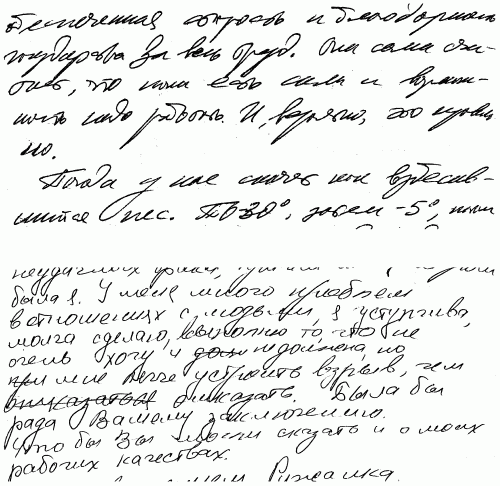 обеспеченная старость и благодарность
государства за весь труд. Она сама счи-
тает, что пока есть силы и возмож-
ность надо работать. И, вероятно, это правиль
но.
Погода у нас скачет как взбесив-
шийся пес. То 30°, затем -5°,
была я. У меня много проблем
в отношениях с людьми, я уступчива,
молча сделаю, выполню то, что не
очень хочу и не должна, но
при мне легче устроить взрыв, чем
отказать. Была бы
рада Вашему заключению.
Что бы Вы могли сказать и о моих
рабочих качествах.